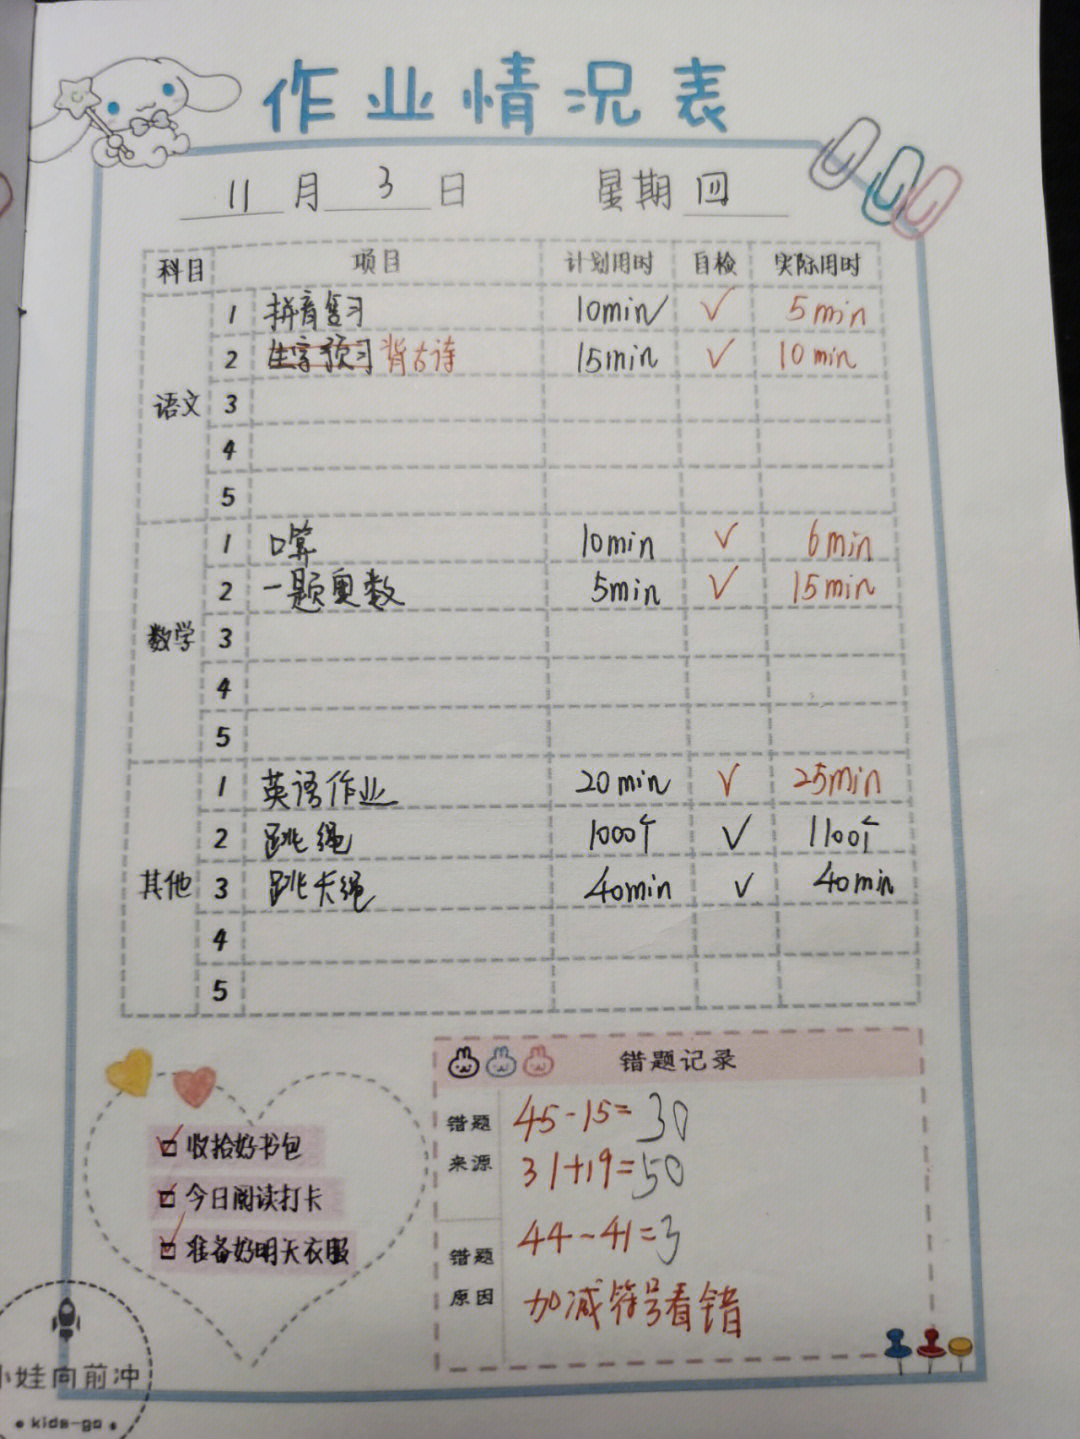 作业情况表
11月3日 星期四
科目 项目 计划用时 自检 实际用时
语文
1 拼音复习 10min ✓ 5min
2 生字预习 背古诗 15min ✓ 10min
3
4
5
数学
1 口算 10min ✓ 6min
2 一题奥数 5min ✓ 15min
3
4
5
其他
1 英语作业 20min ✓ 25min
2 跳绳 1000个 ✓ 1100个
3 跳长绳 40min ✓ 40min
4
5
收拾好书包
今日阅读打卡
准备好明天衣服
错题记录
错题来源
45-15=30
31+19=50
44-41=3
错题原因
加减符号看错
小娃向前冲
kids-go